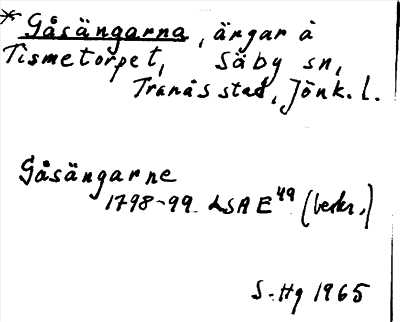 * Gåsängarna, ärgar å
Tismetorpet, Säby sn,
Tranås stad, Jönk. l.
Gåsängarne
1798-99 LSA E 49 (beskr.)
S-Hg 1965